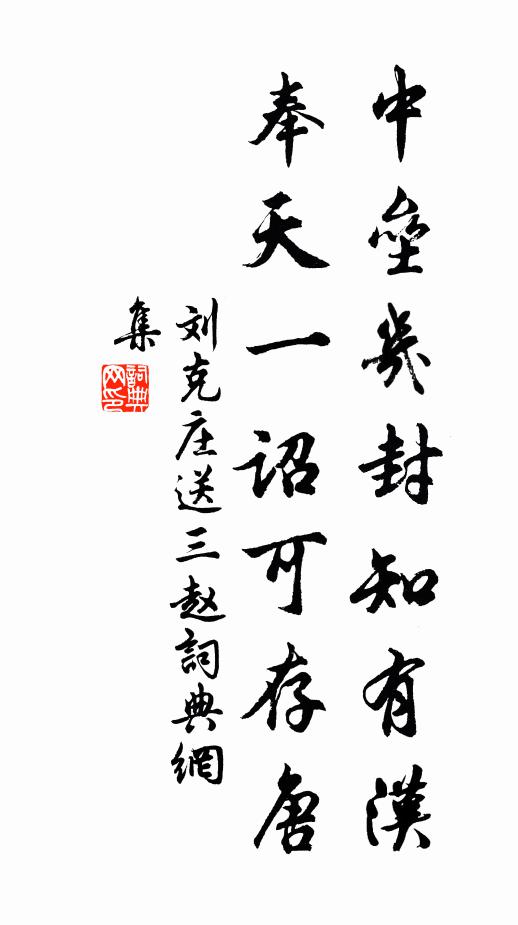 中壘幾封知有漢
奉天一詔可存唐
刘克庄送三赵詞典網
集
詞典网印